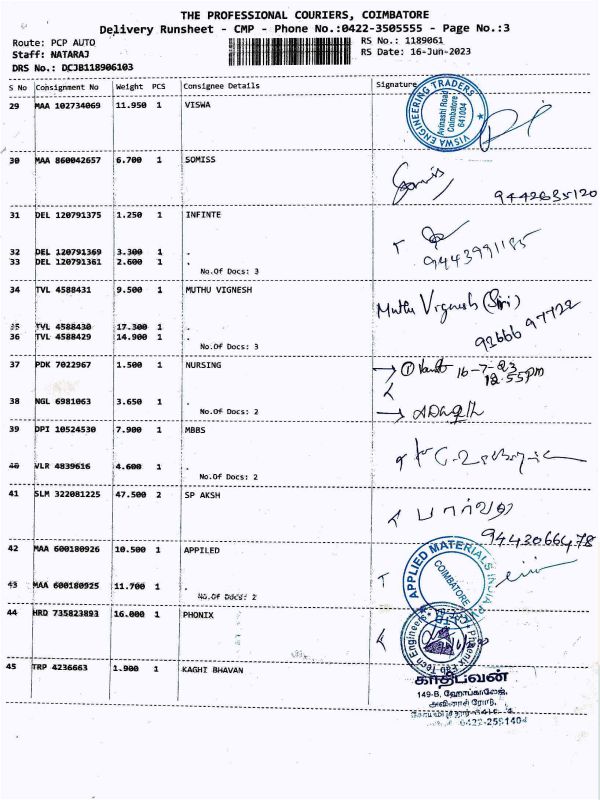 THE PROFESSIONAL COURIERS, COIMBATORE
Delivery Runsheet - CMP - Phone No.:0422-3505555 - Page No.:3
Route: PCP AUTO RS No.: 1189061
Staff: NATARAJ RS Date: 16-Jun-2023
DRS No.: DCJB118906103
S No Consignment No Weight PCS Consignee Details Signature
29 MAA 102734069 11.950 1 VISWA
VISWA ENGINEERING TRADERS
Avinashi Road
Coimbatore
641004
30 MAA 860042657 6.700 1 SOMISS
9442635120
31 DEL 120791375 1.250 1 INFINTE
32 DEL 120791369 3.300 1 .
33 DEL 120791361 2.600 1 .
9443991185
No.Of Docs: 3
34 TVL 4588431 9.500 1 MUTHU VIGNESH
Muthu Vignesh
35 TVL 4588430 17.300 1 .
36 TVL 4588429 14.900 1 .
93666 97722
No.Of Docs: 3
37 PDK 7022967 1.500 1 NURSING
16-7-23
12.55pm
38 NGL 6981063 3.650 1 .
No.Of Docs: 2
39 DPI 10524530 7.900 1 MBBS
40 VLR 4839616 4.600 1 .
No.Of Docs: 2
41 SLM 322081225 47.500 2 SP AKSH
பார்வதி
9443066478
42 MAA 600180926 10.500 1 APPILED
APPLIED MATERIALS INDIA P
COIMBATORE
43 MAA 600180925 11.700 1 .
No.Of Docs: 2
44 HRD 735823893 16.000 1 PHONIX
45 TRP 4236663 1.900 1 KAGHI BHAVAN
149-B, ஹோப்காலேஜ்,
அவினாசி ரோடு,
0422-2591404